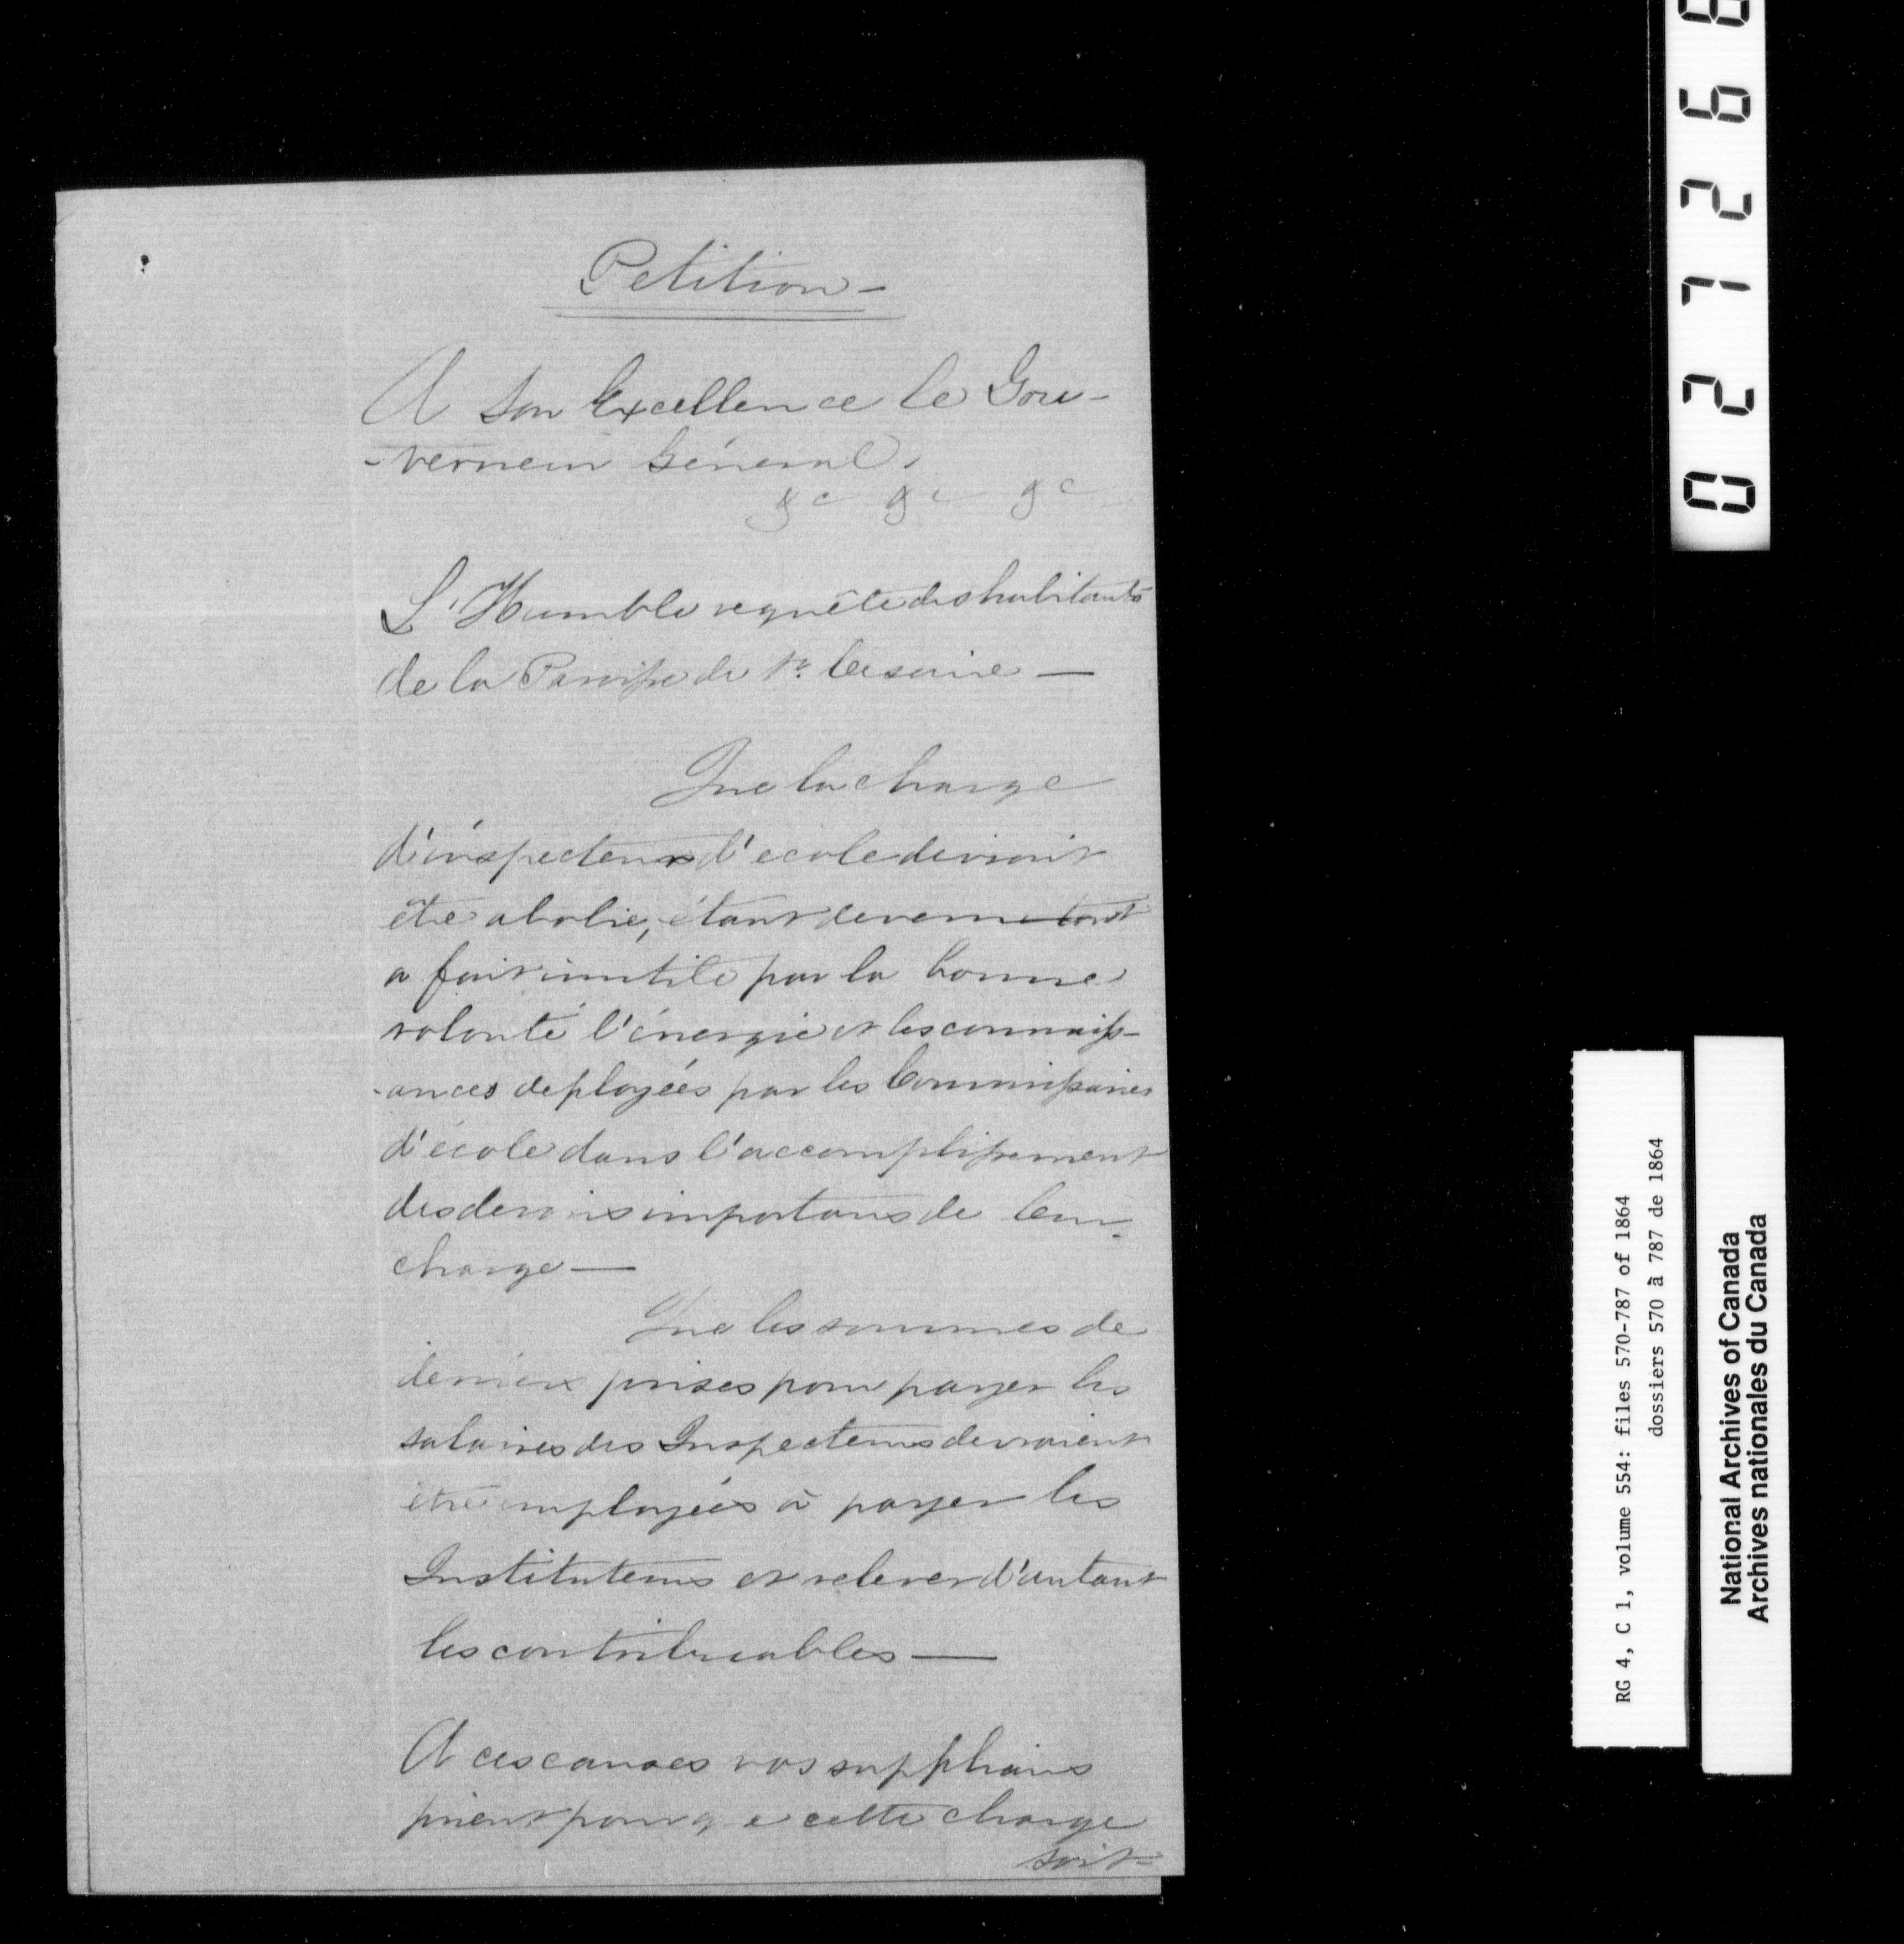 Petition -
A Son Excellence le Gou-
-verneur Général.
&c &c &c
L'Humble requête des habitants
de la Paroisse de St. Cesaire —
Que la charge
d'inspecteur d'ecole devrait
être abolie, étant devenue tout
a fait inutile par la bonne
volonté l'énergie et les connaiss-
-ances deployées par les Commissaires
d'école dans l'accomplissement
des devoirs importans de leur
charge —
Que les sommes de
deniers prises pour payer les
salaires des Inspecteurs devraient
être employées à payer les
Instituteurs et relever d'autant
les contribuables —
A ces causes vos supplians
prient pour que cette charge
soit-
027268
RG 4, C 1, volume 554: files 570-787 of 1864
dossiers 570 à 787 de 1864
National Archives of Canada
Archives nationales du Canada